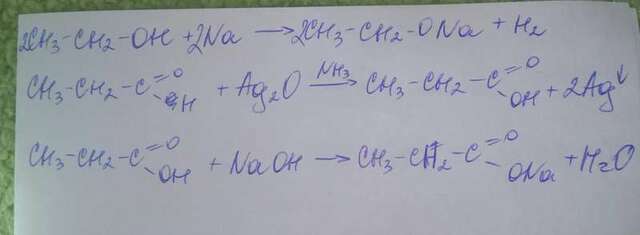 2CH₃-CH₂-OH + 2Na → 2CH₃-CH₂-ONa + H₂
CH₃-CH₂-C(=O)H + Ag₂O —NH₃→ CH₃-CH₂-C(=O)OH + 2Ag↓
CH₃-CH₂-C(=O)OH + NaOH → CH₃-CH₂-C(=O)ONa + H₂O